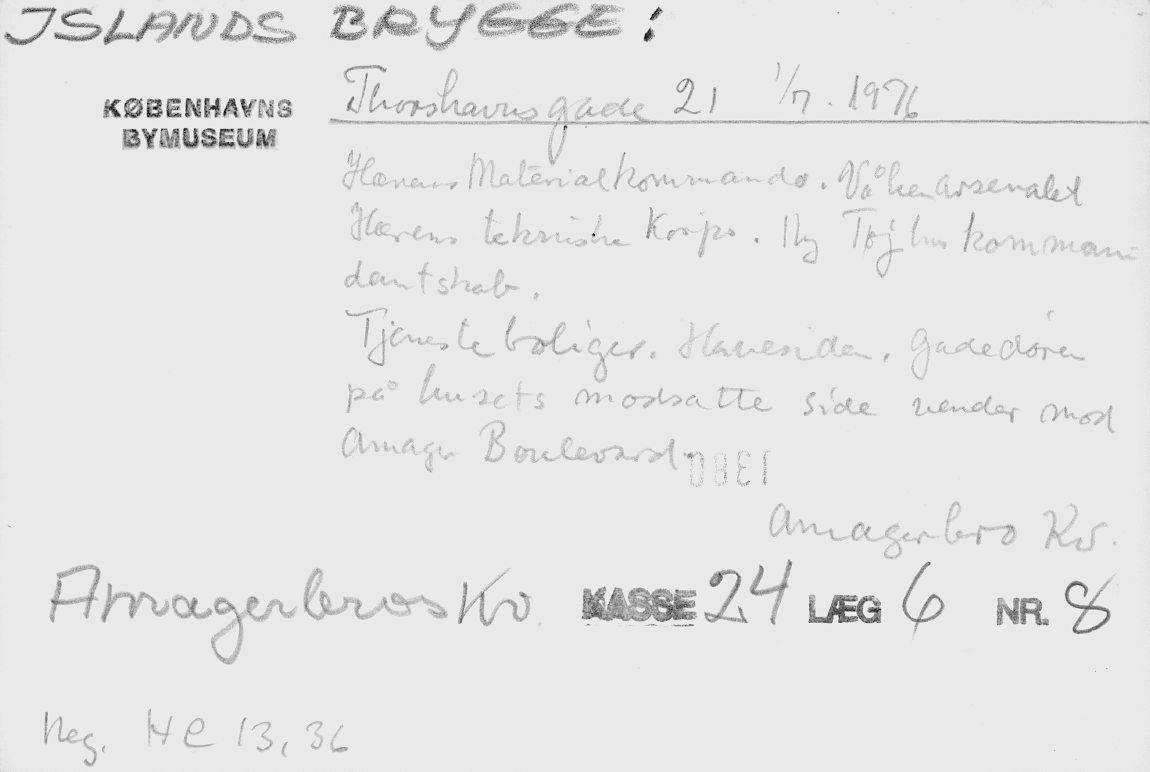 ISLANDS BRYGGE:
KØBENHAVNS
BYMUSEUM
Thorshavnsgade 21 1/7. 1976
Hærens Materielkommando. Våbenarsenalet
Hærens tekniske Korps. Ny Tøjhuskomman-
dantskab.
Tjenesteboliger. Havesiden. Gadedøren
på husets modsatte side vender mod
Amager Boulevard.
1380
Amagerbro Kv.
Amagerbros Kv. KASSE 24 LÆG 6 NR. 8
Neg. HC 13, 36